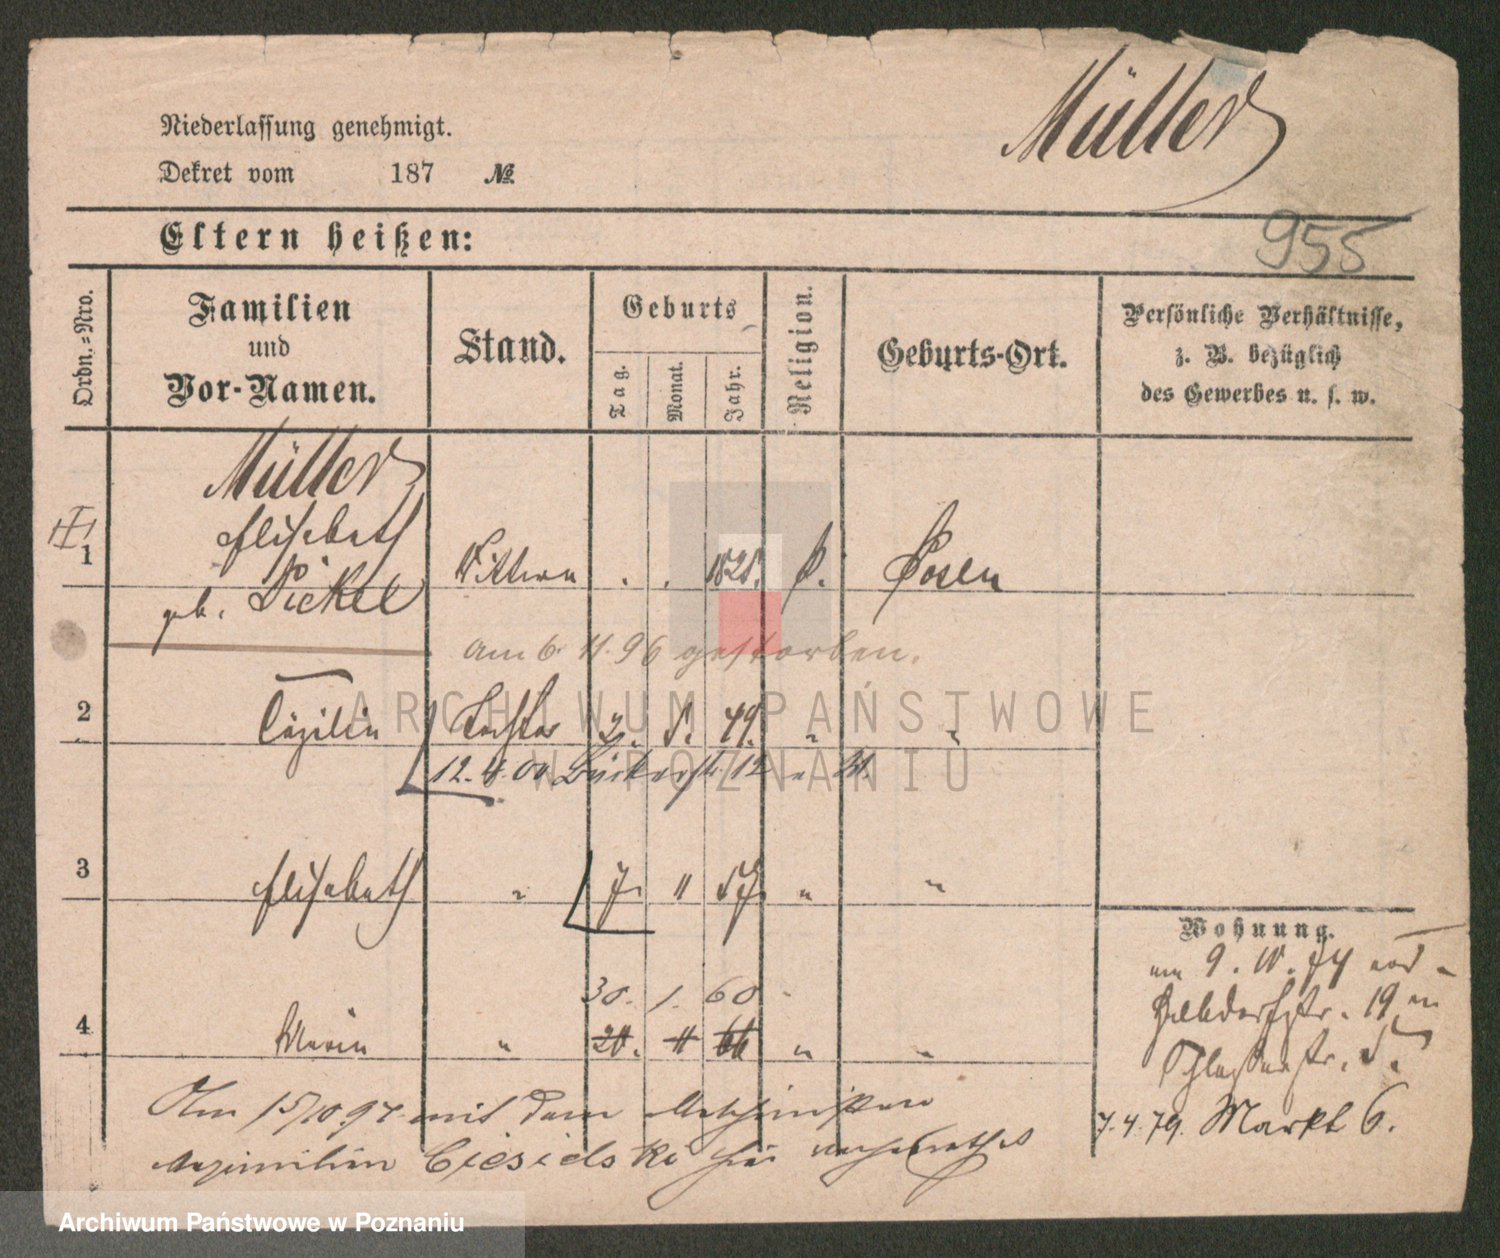 Müller
Niederlassung genehmigt.
Dekret vom 187 №
955
Eltern heißen:
Ordn.=Nro.
Familien
und
Vor-Namen.
Stand.
Geburts
Tag.
Monat.
Jahr.
Religion.
Geburts-Ort.
Persönliche Verhältnisse,
z. B. bezüglich
des Gewerbes u. s. w.
Müller
Elisabeth
geb. Pickel
1 Wittwe . . 1825. Posen
am 6. 11. 96 gestorben.
2 Cäzilie Tochter 5. 49. "
12. 4. 00 Bäckerstr. 12
3 Elisabeth " 7. 11 57. " "
30. 1. 60
4 Maria " 20. 11 " "
Am 15/10 97 mit dem
Maximilian Ciesielski hier verheirathet
Wohnung.
am 9. 10. 74 von
Halbdorfstr. 19 en
Schlosserstr. 5.
7. 4. 79. Markt 6.
ARCHIWUM PAŃSTWOWE
W POZNANIU
Archiwum Państwowe w Poznaniu